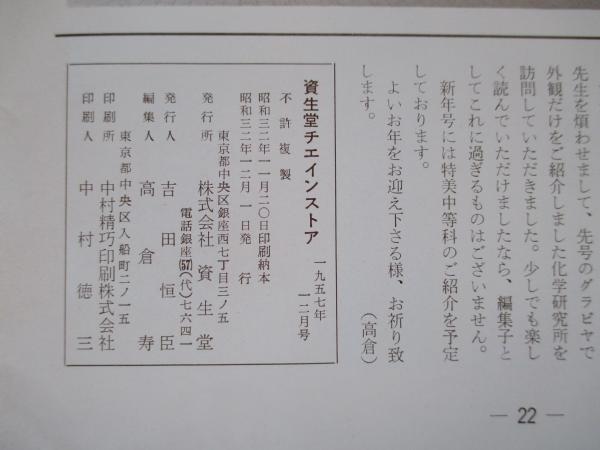 先生を煩わせまして、先号のグラビヤで
外観だけをご紹介しました化学研究所を
訪問していただきました。少しでも楽し
く読んでいただけましたなら、編集子と
してこれに過ぎるものはございません。
新年号には特美中等科のご紹介を予定
しております。
よいお年をお迎え下さる様、お祈り致
します。
（高倉）
資生堂チエインストア 一九五七年 一二月号
不許複製
昭和三二年一一月二〇日印刷納本
昭和三二年一二月一日発行
東京都中央区銀座西七丁目三ノ五
発行所 株式会社 資生堂
電話銀座(57)(代)七六四一
発行人 吉田恒臣
編集人 高倉寿
東京都中央区入船町二ノ一五
印刷所 中村精巧印刷株式会社
印刷人 中村徳三
— 22 —